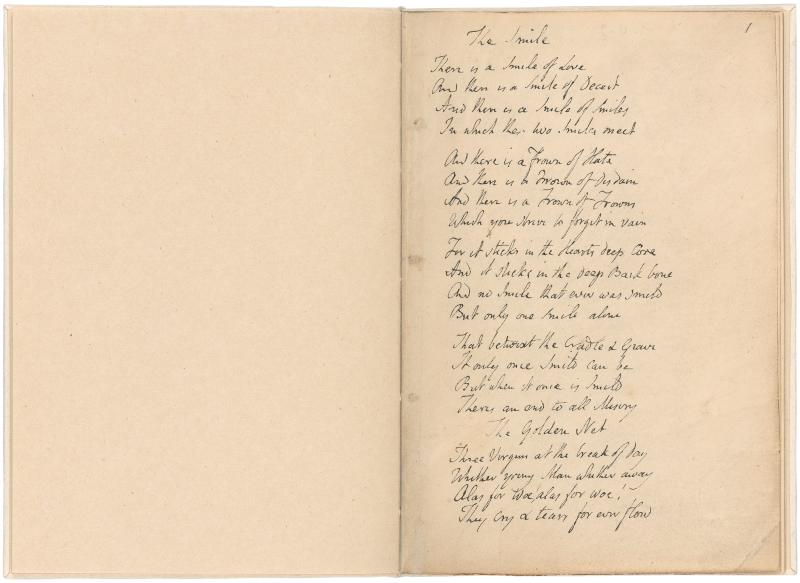 1
The Smile
There is a Smile of Love
And there is a Smile of Deceit
And there is a Smile of Smiles
In which these two Smiles meet
And there is a Frown of Hate
And there is a Frown of Disdain
And there is a Frown of Frowns
Which you strive to forget in vain
For it sticks in the Hearts deep Core
And it sticks in the deep Back bone
And no Smile that ever was smild
But only one Smile alone
That betwixt the Cradle & Grave
It only once Smild can be
But when it once is Smild
Theres an end to all Misery
The Golden Net
Three Virgins at the break of Day
Whither young Man whither away
Alas for woe! alas for woe!
They cry & tears for ever flow